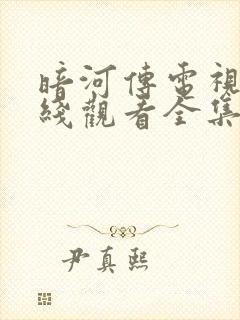 暗河傳電視
綫觀看全集
尹真熙